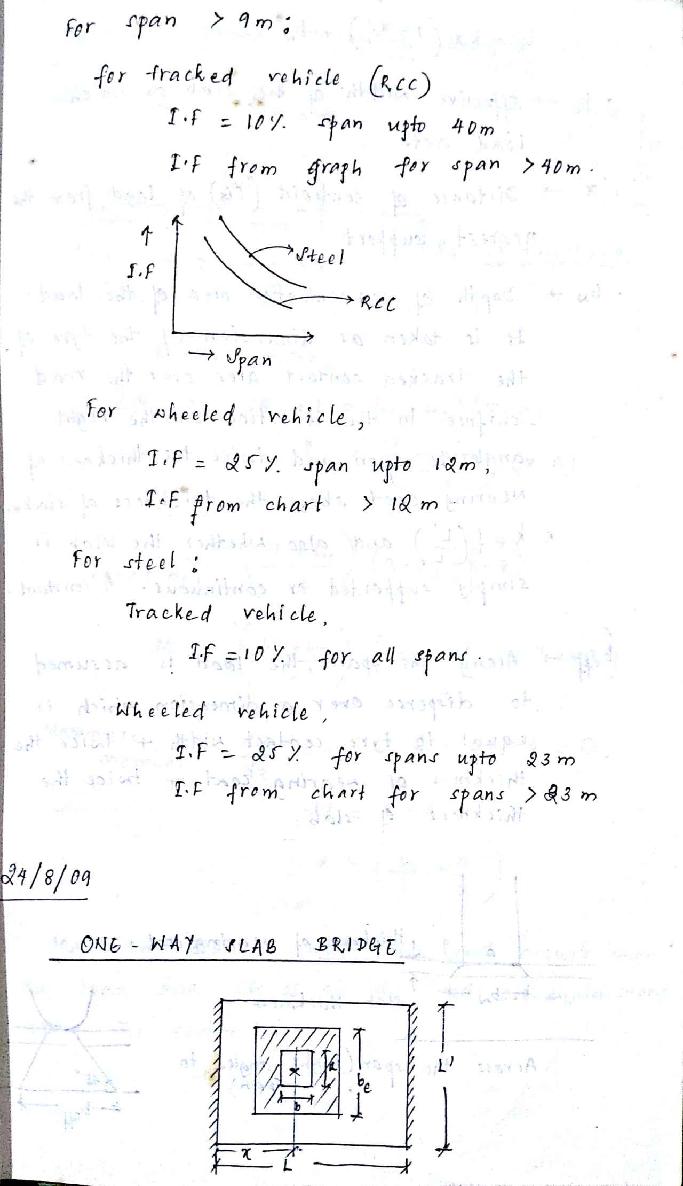 For span > 9m:
for tracked vehicle (RCC)
I.F = 10% span upto 40m
I.F from graph for span > 40m.
↑
I.F
Steel
RCC
→ Span
For wheeled vehicle,
I.F = 25% span upto 12m,
I.F from chart > 12m
For steel:
Tracked vehicle,
I.F = 10% for all spans.
Wheeled vehicle,
I.F = 25% for spans upto 23m
I.F from chart for spans > 23m
24/8/09
ONE-WAY SLAB BRIDGE
b
be
L'
x
L